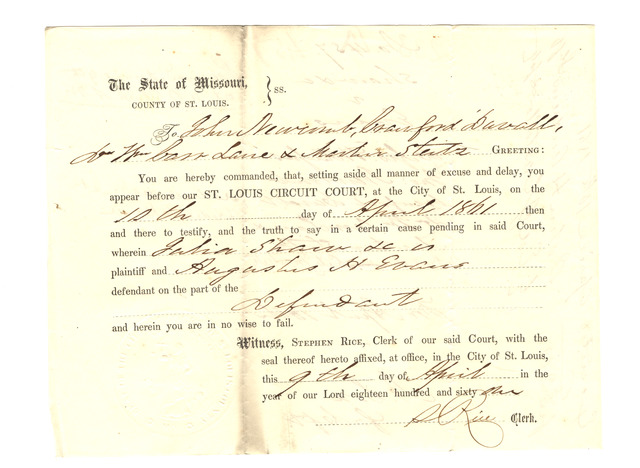 The State of Missouri, } ss.
COUNTY OF ST. LOUIS.
To John Newcomb, Cranford Duvall,
Dr Wm Carr Lane & Martin Steitz GREETING:
You are hereby commanded, that, setting aside all manner of excuse and delay, you
appear before our ST. LOUIS CIRCUIT COURT, at the City of St. Louis, on the
10th day of April 1861 then
and there to testify, and the truth to say in a certain cause pending in said Court,
wherein Julia Shaw &c is
plaintiff and Augustus H Evans
defendant on the part of the
Defendant
and herein you are in no wise to fail.
Witness, STEPHEN RICE, Clerk of our said Court, with the
seal thereof hereto affixed, at office, in the City of St. Louis,
this 9th day of April in the
year of our Lord eighteen hundred and sixty one
S Rice Clerk.